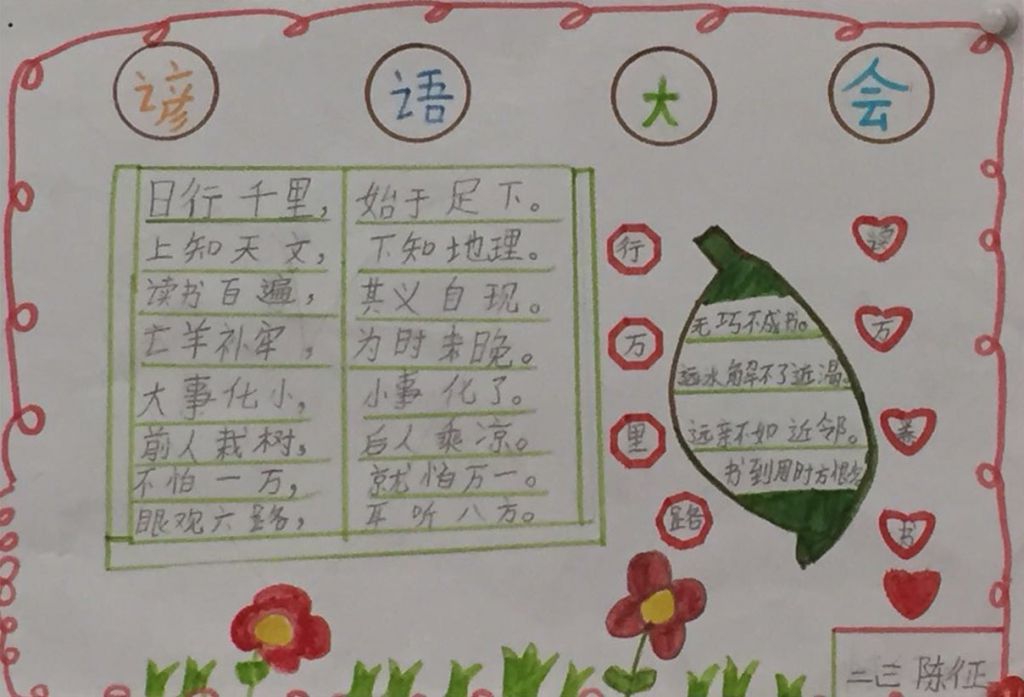 谚语大会
日行千里，始于足下。
上知天文，下知地理。
读书百遍，其义自现。
亡羊补牢，为时未晚。
大事化小，小事化了。
前人栽树，后人乘凉。
不怕一万，就怕万一。
眼观六路，耳听八方。
行
万
里
路
无巧不成书。
远水解不了近渴。
远亲不如近邻。
书到用时方恨
读
万
卷
书
二三 陈征